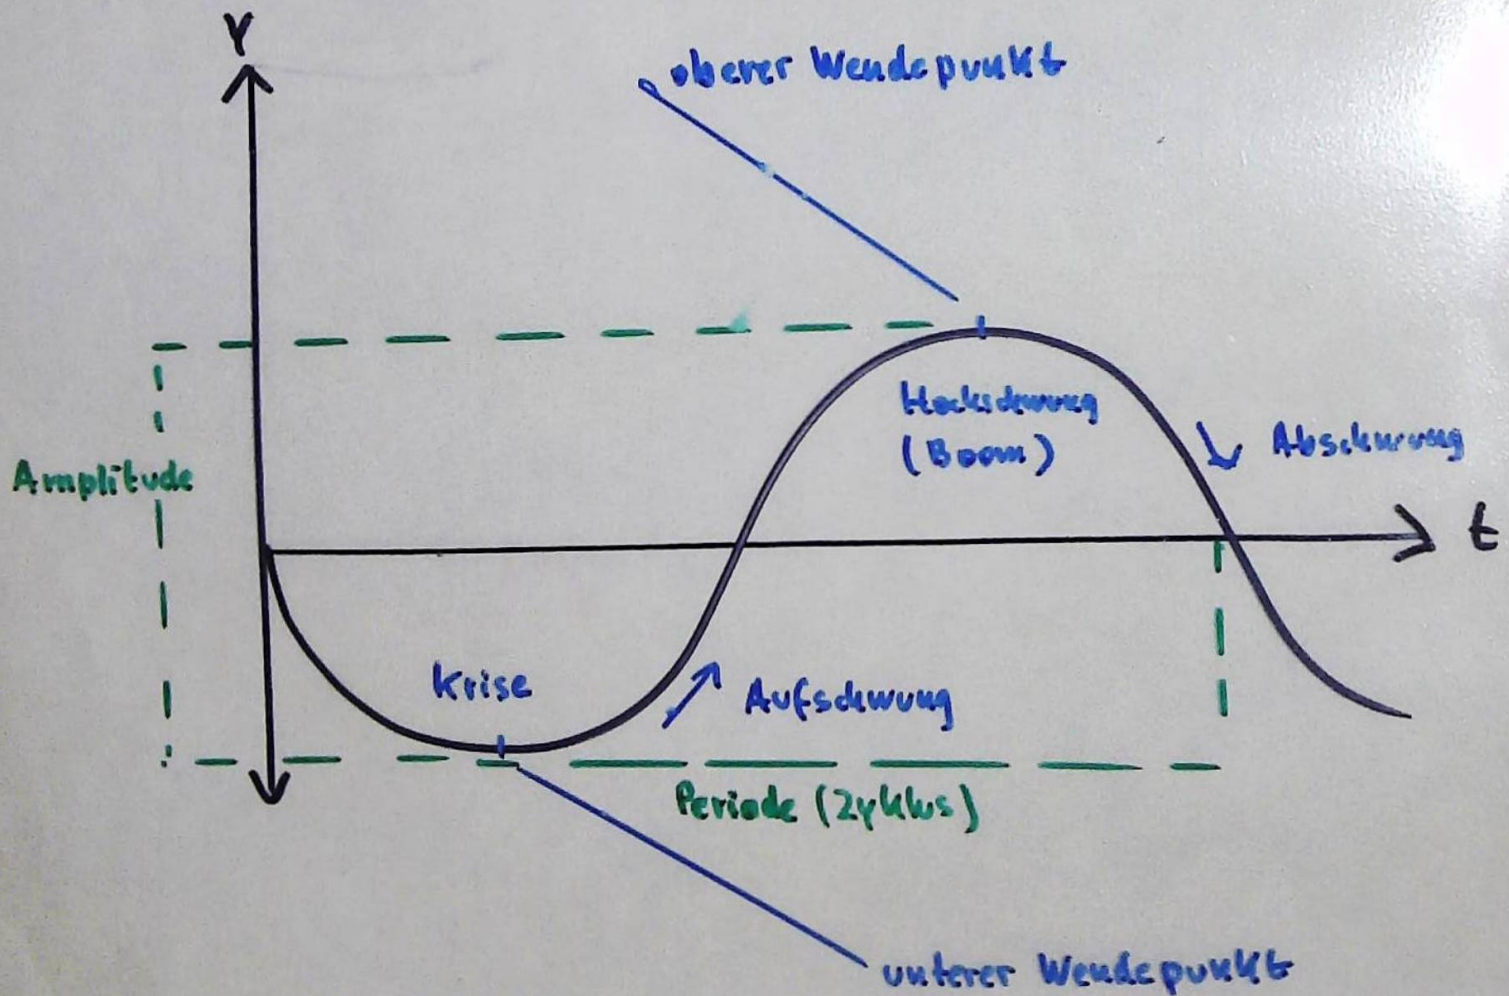 Y
oberer Wendepunkt
Hochschwung
(Boom)
Abschwung
Amplitude
t
Krise
Aufschwung
Periode (Zyklus)
unterer Wendepunkt